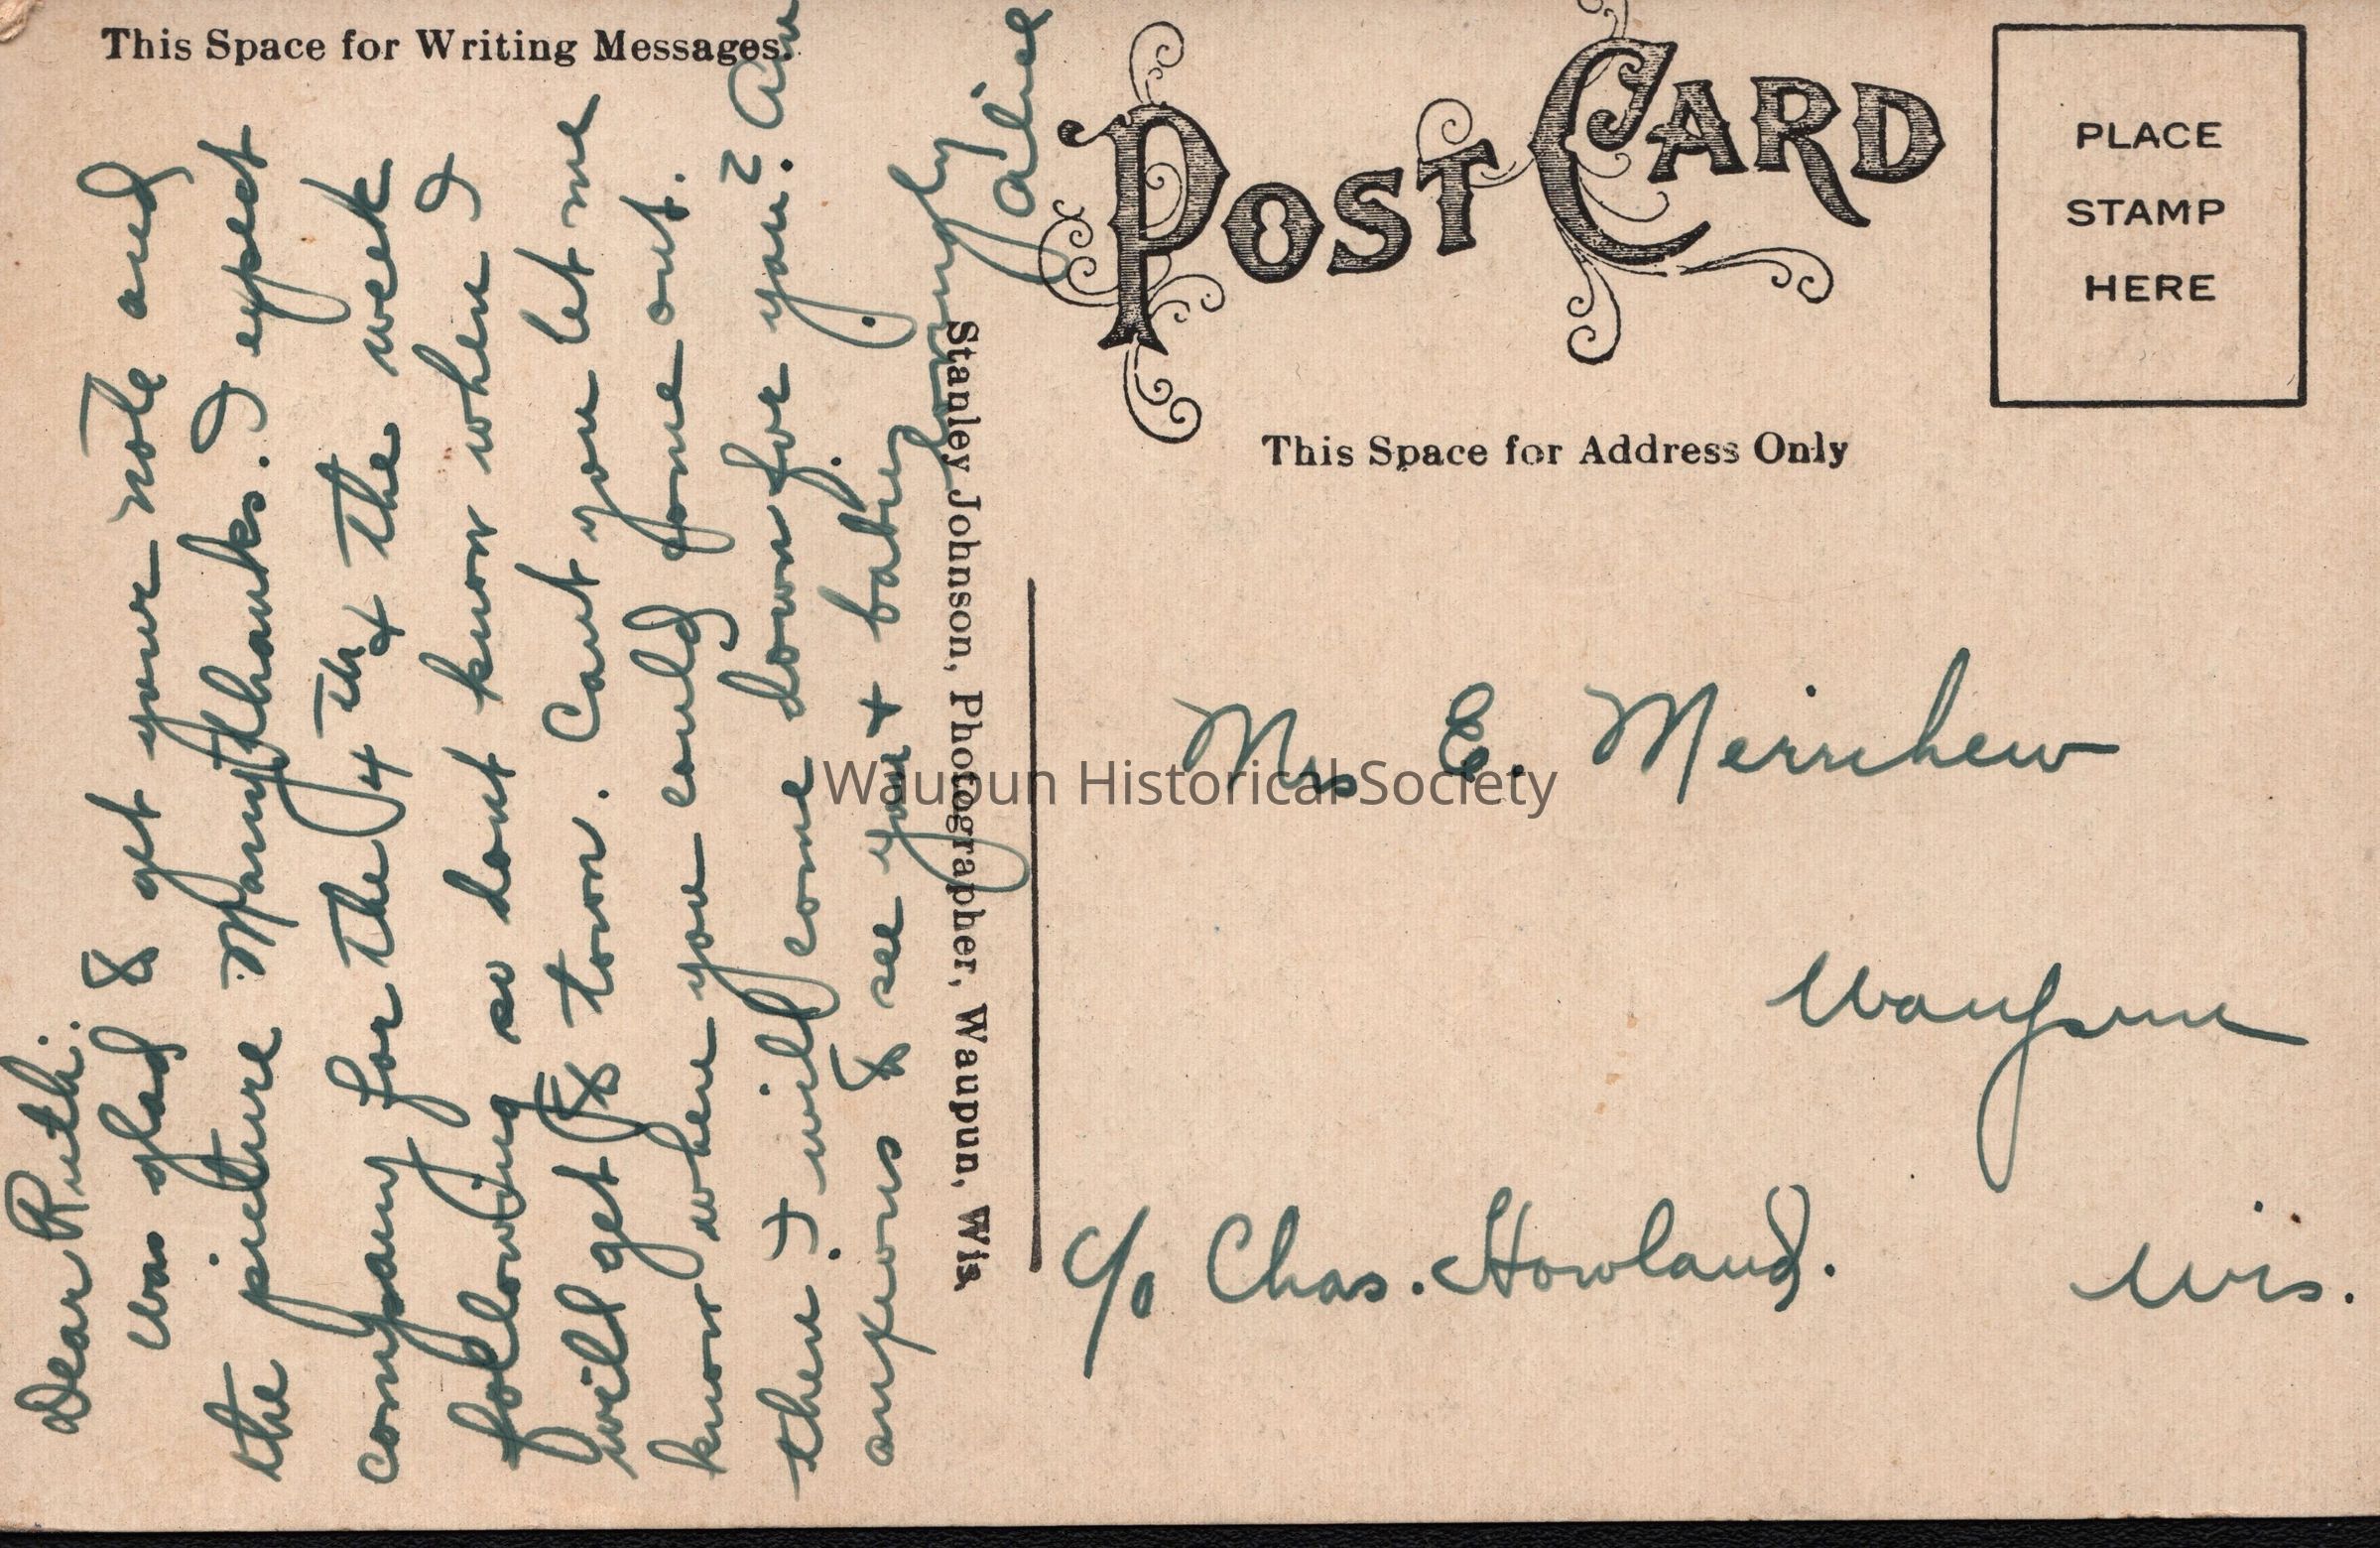 This Space for Writing Messages.
Dear Ruth:
was glad to get your note and
the picture Many thanks. I expect
company for the 4th & the week
following so dont know when I
will get to town. Cant you let me
know when you could come out.
then I will come down for you? Am
anxious to see you & baby.
Lovingly
Alice
Stanley Johnson, Photographer, Waupun, Wis.
POST CARD
PLACE
STAMP
HERE
This Space for Address Only
Mrs E. Merrihew
Waupun
Wis.
c/o Chas. Howland.
Waupun Historical Society